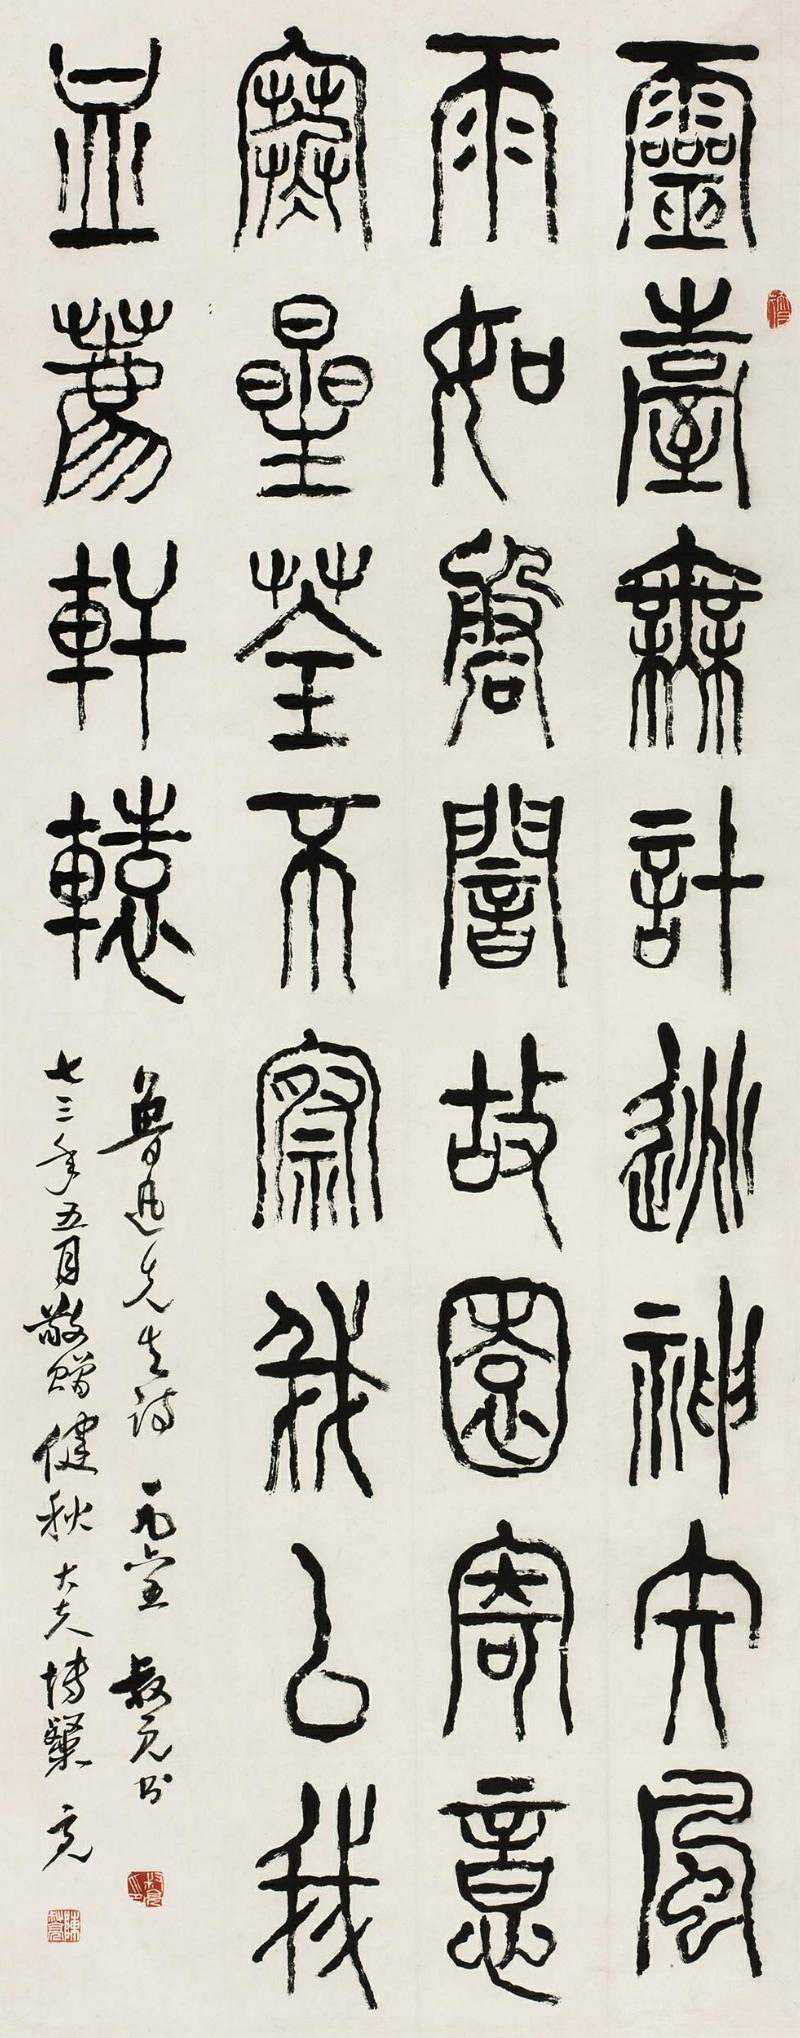 靈臺無計逃神矢風
雨如磐闇故園寄意
寒星荃不察我以我
血薦軒轅
魯迅先生詩 叔亮书
七三年五月敬赠健秋大夫博粲 亮